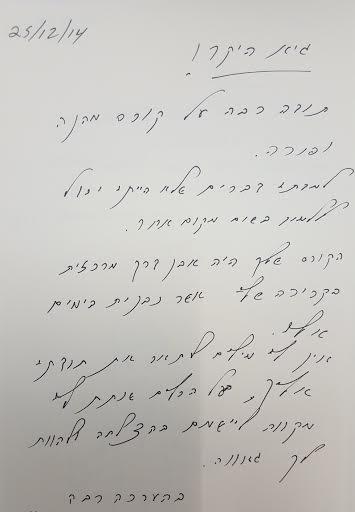 25/12/14
גיא היקר!
תודה רבה על קורס מהנה
ופורה.
למדתי דברים שלא הייתי יכול
ללמוד בשום מקום אחר.
הקורס שלך היה אבן דרך מרכזית
בקריירה שלי אשר נבנית בימים
אלו.
אין לי מילים לתאר את תודתי
אליך, על הכלים שנתת לי
מקווה ליישמם בהצלחה ולהוות
לך גאווה.
בהערכה רבה